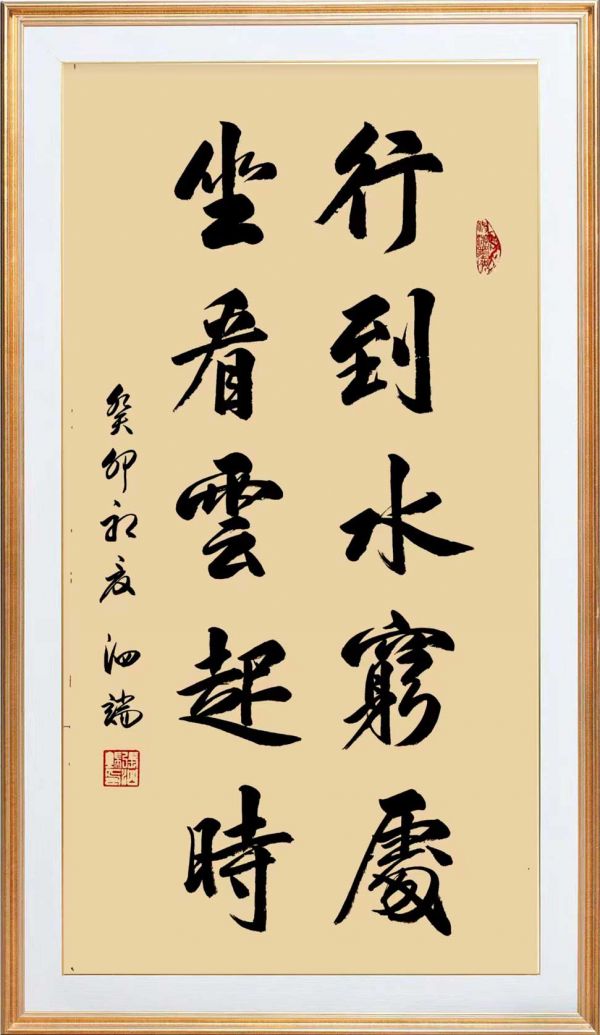 行到水窮處
坐看雲起時
癸卯初夏 泗端